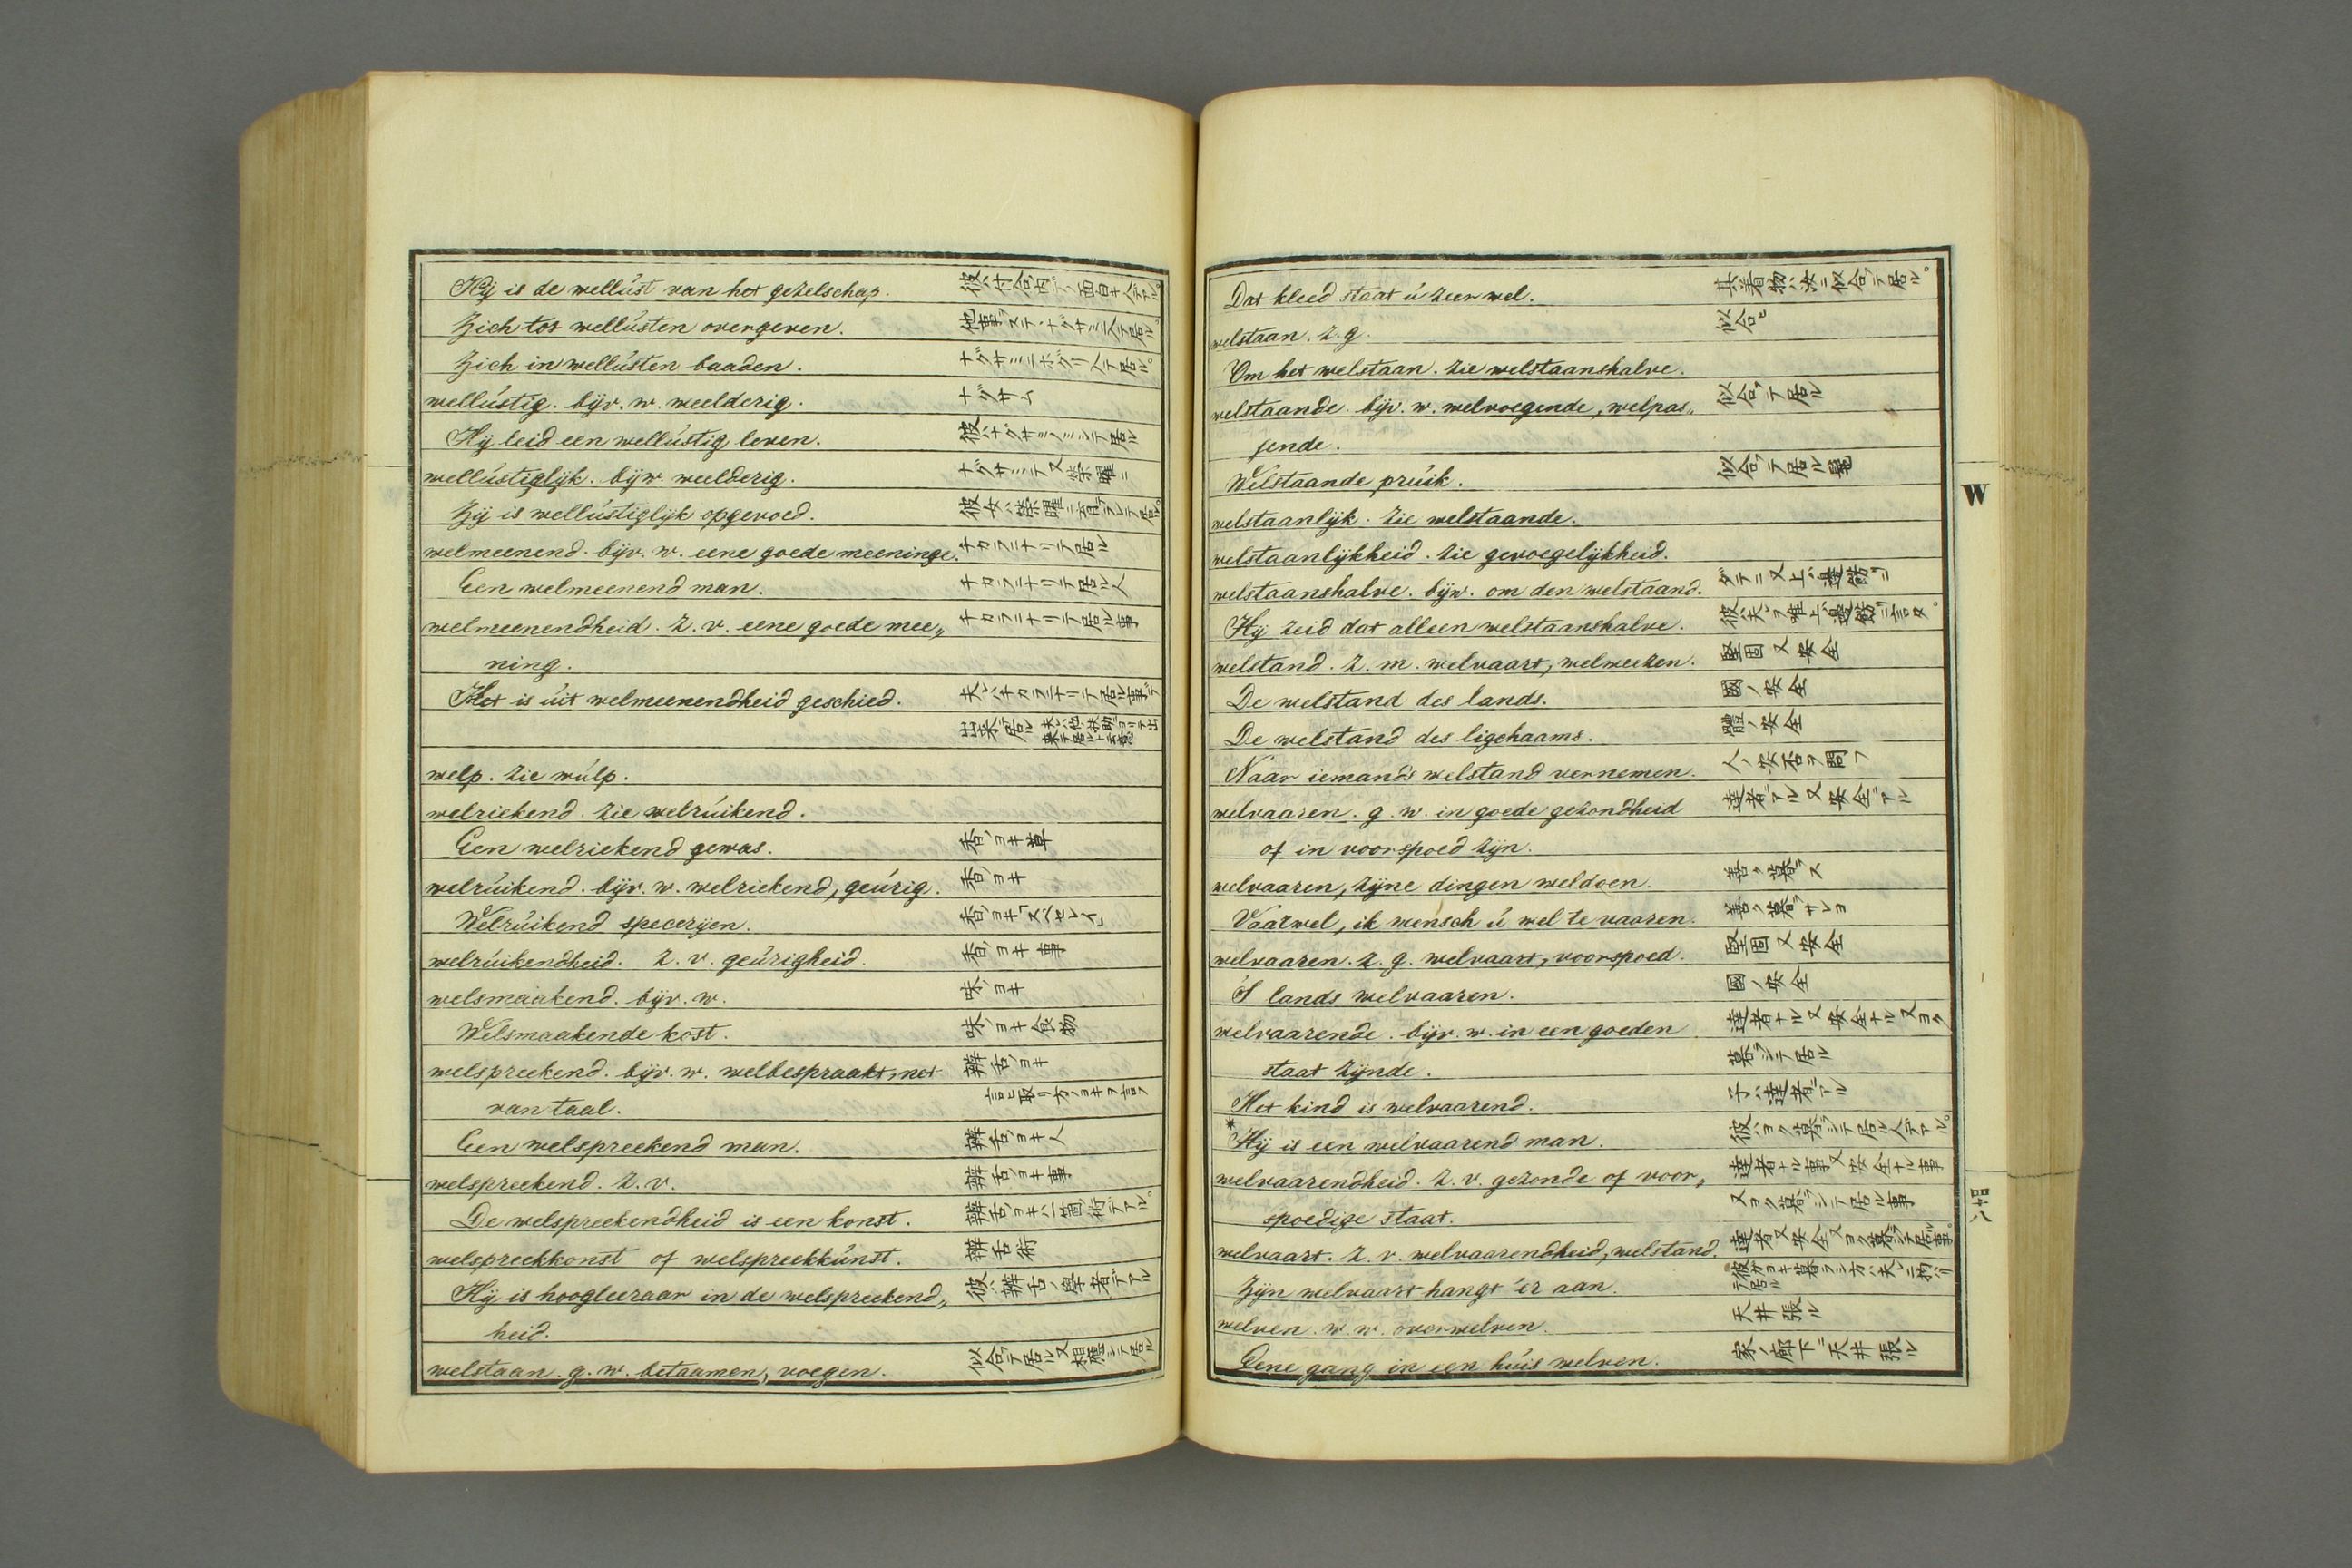 Hij is de wellúst van het gezelschap.
Zich tot wellústen overgeven.
Zich in wellústen baaden.
ナグサミニホグリ入テ居ル。
wellústig. bijv. w. weelderig.
ナグサム
Hij leid een wellústig leven.
彼ハナグサミノミシテ居ル
wellústiglijk. bijw. weelderig.
ナグサミテ又栄曜ニ
Zij is wellústiglijk opgevoed.
彼女ハ栄曜ニ育ラレテ居ル。
welmeenend. bijv. w. eene goede meeninge.
チカラニナリテ居ル
Een welmeenend man.
チカラニナリテ居ル人
welmeenendheid. Z. v. eene goede mee„
チカラニナリテ居ル事
ning.
Het is úit welmeenendheid geschied.
夫レハチカラニナリテ居ル事デ
出来テ居ル
welp. Zie wúlp.
welriekend. Zie welrúikend.
Een welriekend gewas.
香ノヨキ草
welrúikend. bijv. w. welriekend, geúrig.
香ノヨキ
Welrúikend specerijen.
welrúikendheid. Z. v. geúrigheid.
香ノヨキ事
welsmaakend. bijv. w.
味ノヨキ
Welsmaakende kost.
味ノヨキ食物
welspreekend. bijv. w. welbespraakt, net
辨舌ノヨキ
van taal.
言ヒ取リ方ノヨキヲ言フ
Een welspreekend man.
辨舌ノヨキ人
welspreekend. Z. v.
辨舌ノヨキ事
De welspreekendheid is een konst.
辨舌ノヨキハ一箇ノ術デアル。
welspreekkonst of welspreekkúnst.
辨舌術
Hij is hoogleeraar in de welspreekend„
彼ハ辨舌ノ學者デアル
heid.
welstaan. g. w. betaamen, voegen.
似合テ居ル又相應シテ居ル
Dat kleed staat ú zeer wel.
其着物ハ汝ニ似合フテ居ル。
welstaan. Z. g.
似合ヒ
Om het welstaan. Zie welstaanshalve.
welstaande. bijv. w. welvoegende, welpas„
似合フテ居ル
sende.
Welstaande prúik.
似合フテ居ル鬘
welstaanlijk. Zie welstaande.
welstaanlijkheid. Zie gevoegelijkheid.
welstaanshalve. bijw. om den welstaand.
ダテニ又上邊飾リニ
Hij zeid dat alleen welstaanshalve.
彼ハ夫ヲ唯上邊飾リニ言タ。
welstand. Z. m. welvaart, welweezen.
堅固又安全
De welstand des lands.
國ノ安全
De welstand des ligchaams.
體ノ安全
Naar iemands welstand vernemen.
人ノ安否ヲ問フ
welvaaren. g. w. in goede gezondheid
達者デアル又安全デアル
of in voorspoed zijn.
welvaaren, zijne dingen weldoen.
善ク暮ラス
Vaarwel, ik wensch ú wel te vaaren.
善ク暮ラサレヨ
welvaaren. Z. g. welvaart, voorspoed.
堅固又安全
'S lands welvaaren.
國ノ安全
welvaarende. bijv. w. in een goeden
達者ナル又安全ナル又ヨク
staat zijnde.
暮ラシテ居ル
Het kind is welvaarend.
子ハ達者デアル
Hij is een welvaarend man.
彼ハヨク暮ラシテ居ル人デアル。
welvaarendheid. Z. v. gezonde of voor„
達者ナル事又安全ナル事
spoedige staat.
又ヨク暮ラシテ居ル事
welvaart. Z. v. welvaarendheid, welstand.
達者又安全又ヨク暮ラシテ居ル事。
Zijn welvaart hangt 'er aan.
welven. w. w. overwelven.
天井張ル
Eene gang in een húis welven.
家ノ廊下ニ天井張ル
W